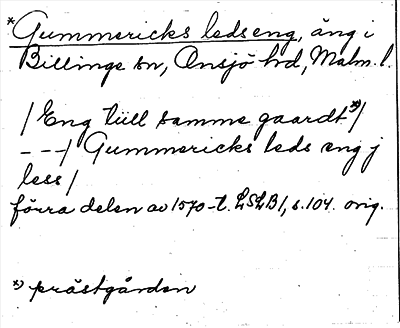 *Gummericks ledseng, äng i
Billinge sn, Onsjö hd, Malm. l.
/ Eng tiill samme gaardt *)/
- - -/ Gummericks leds eng j
less /
förra delen av 1570-t. LSLB1, s. 104. orig.
*) prästgården